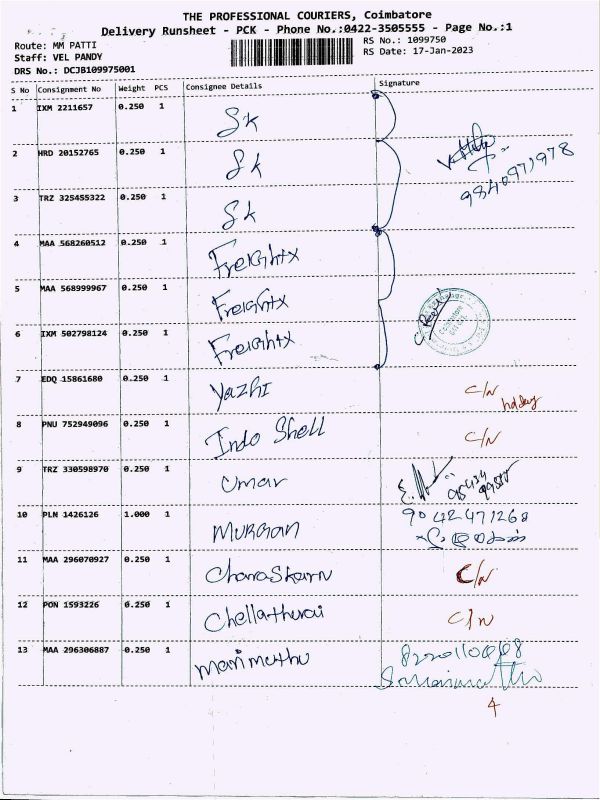 THE PROFESSIONAL COURIERS, Coimbatore
Delivery Runsheet - PCK - Phone No.:0422-3505555 - Page No.:1
Route: MM PATTI RS No.: 1099750
Staff: VEL PANDY RS Date: 17-Jan-2023
DRS No.: DCJB109975001
S No Consignment No Weight PCS Consignee Details Signature
1 IXM 2211657 0.250 1 Sk
2 HRD 20152765 0.250 1 Sk
9840971978
3 TRZ 325455322 0.250 1 Sk
4 MAA 568260512 0.250 1 Freightx
5 MAA 568999967 0.250 1 Freightx
6 IXM 502798124 0.250 1 Freightx
7 EDQ 15861680 0.250 1 Yazhi C/N
8 PNU 752949096 0.250 1 Indo Shell C/N
9 TRZ 330598970 0.250 1 Umar
10 PLN 1426126 1.000 1 Murgan 9042471268
11 MAA 296070927 0.250 1 C/N
12 PON 1593226 0.250 1 Chellathurai C/N
13 MAA 296306887 0.250 1 Marimuthu
4